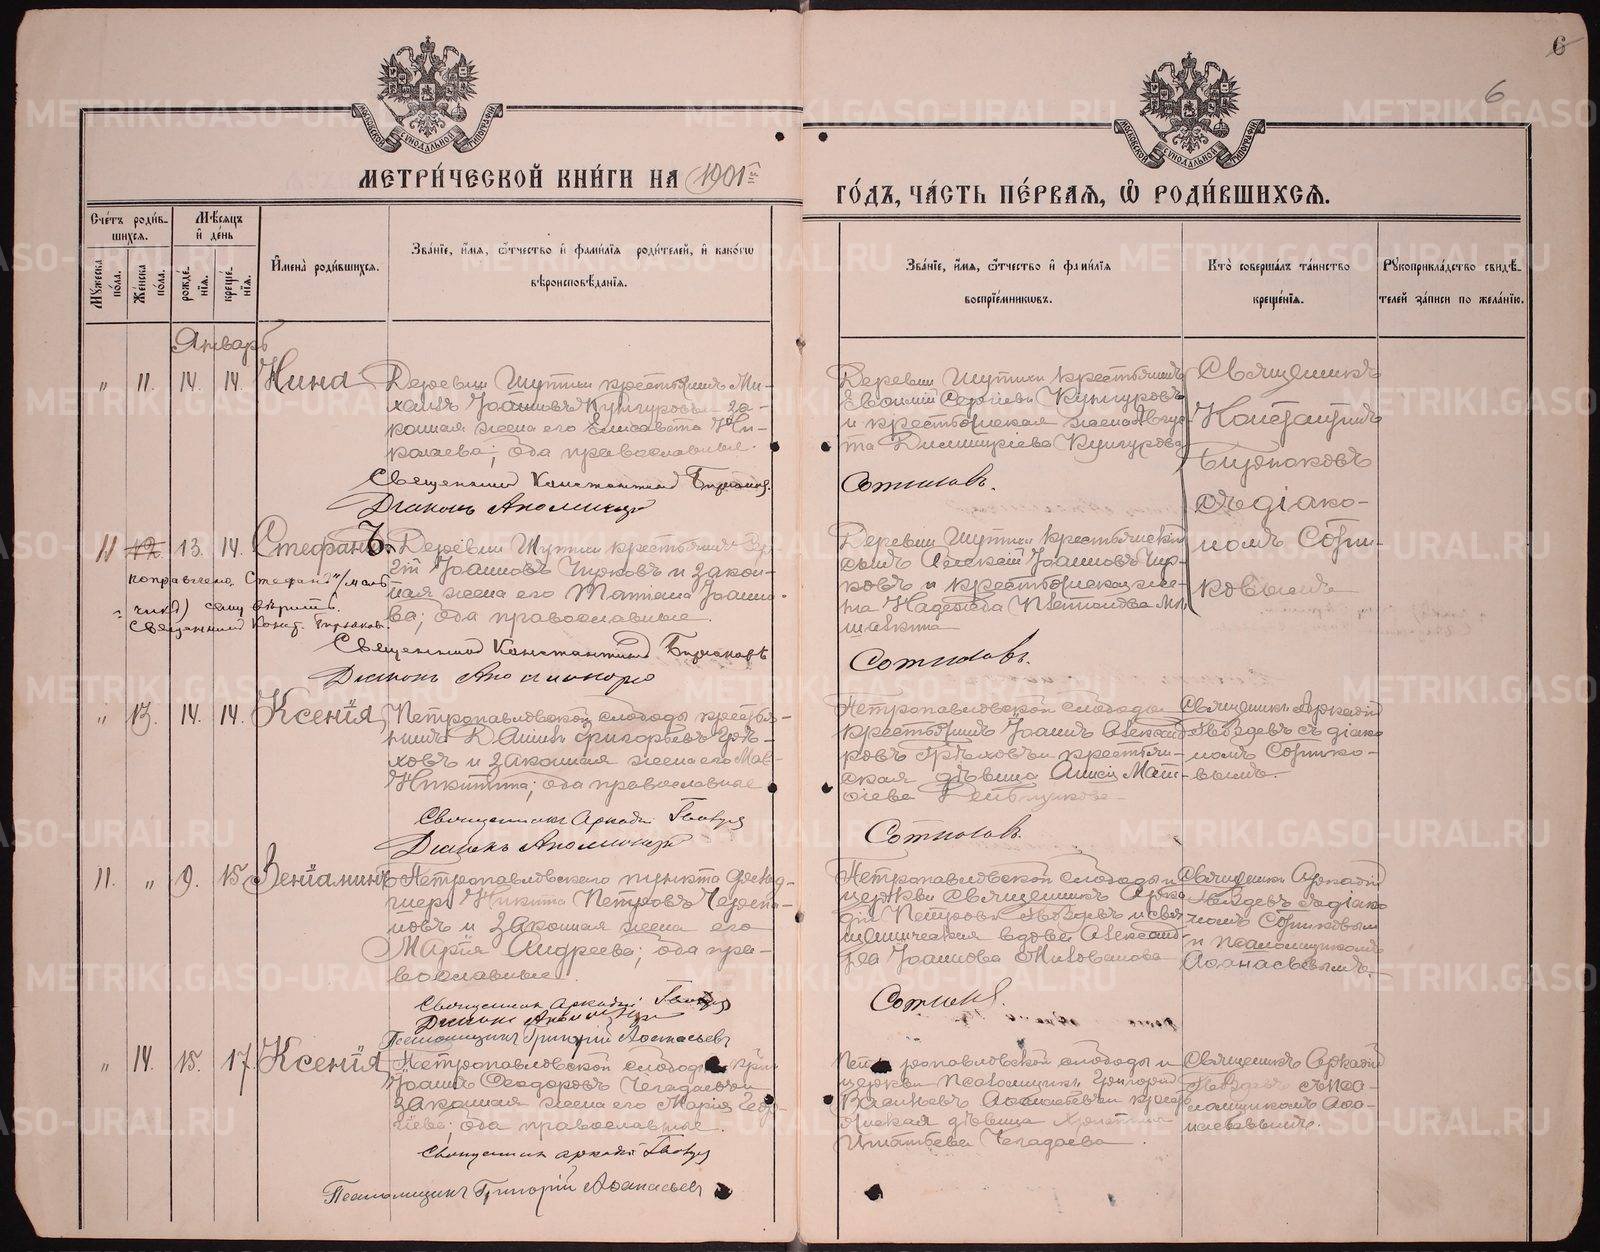 6
6
МЕТРИ́ЧЕСКОЙ КНИ́ГИ НА 1901й
ГО́ДЪ, ЧА́СТЬ ПЕ́РВАЯ, Ѽ РОДИ́ВШИХСЯ.
Сче́тъ роди́в-
шихся.
Мѣ́сяцъ
и҆ де́нь
Мꙋжеска по́ла.
Же́нска по́ла.
рожде́нїя.
креще́нїя.
И҆мена̀ роди́вшихся.
Зва́нїе, и҆́мя, ѻ҆́тчество и҆ фами́лїя роди́телей, и҆ како́гѡ
вѣроисповѣ́данїя.
Зва́нїе, и҆́мя, ѻ҆́тчество и҆ фами́лїя
воспрїе́мникѡвъ.
Кто̀ соверша́лъ та́инство
креще́нїя.
Рꙋкоприкла́дство свидѣ́-
телей за́писи по жела́нїю.
Январь
" 11. 14. 14. Нина
Деревни Шутихи крестьянинъ Ми-
хаилъ Іоанновъ Кунгуровъ и за-
конная жена его Елисавета Ни-
колаева; оба православные.
Священникъ Константинъ Бирюковъ.
Діаконъ Аполлинарій
Деревни Шутихи крестьянинъ
Евѳимій Сергіевъ Кунгуровъ
и крестьянская жена Авгус-
та Димитріева Кунгурова
Сотниковъ.
Священникъ
Константинъ
Бирюковъ
съ діако-
номъ Сотни-
ковымъ
11 12 13. 14. Стефанъ.
поправлено "Стефанъ" (маль-
чикъ) сему вѣрить.
Священникъ Конст. Бирюковъ.
Деревни Шутихи крестьянинъ
Іоанновъ Чирковъ и закон-
ная жена его Татіана Іоанно-
ва; оба православные.
Священникъ Константинъ Бирюковъ
Діаконъ Аполлинарій
Деревни Шутихи крестьянскій
сынъ Алексій Іоанновъ Чир-
ковъ и крестьянская же-
на Надежда
Сотниковъ.
" 13. 14. 14. Ксенія
Петропавловской слободы крестья-
нинъ Даніилъ Григорьевъ Грѣ-
ховъ и законная жена его
Никитина; оба православные
Священникъ Аркадій Гвоздевъ
Діаконъ Аполлинарій
Петропавловской слободы
крестьянинъ Іоаннъ Александ-
ровъ Грѣховъ и крестьян-
ская дѣвица Анисія Мат-
ѳіева
Сотниковъ.
Священникъ Аркадій
Гвоздевъ съ діако-
номъ Сотнико-
вымъ.
11. " 9. 15 Веніаминъ
Петропавловскаго пункта фельд-
шеръ Никита Петровъ Черепа-
новъ и законная жена его
Марія Андреева; оба пра-
вославные
Священникъ Аркадій Гвоздевъ
Діаконъ Аполлинарій
Псаломщикъ Григорій Аѳанасьевъ
Петропавловской слободы и
церкви священникъ Арка-
дій Петровъ Гвоздевъ и свя-
щенническая вдова Александ-
ра Іоаннова Милованова
Сотниковъ.
Священникъ Аркадій
Гвоздевъ съ діако-
номъ Сотниковымъ
и псаломщикомъ
Аѳанасьевымъ.
" 14. 15. 17. Ксенія
Петропавловской слободы
Іоаннъ Ѳеодоровъ Чегадаевъ и
законная жена его Марія Геор-
гіева; оба православные.
Священникъ Аркадій Гвоздевъ
Псаломщикъ Григорій Аѳанасьевъ
Петропавловской слободы и
церкви псаломщикъ Григорій
Аѳанасьевъ и кресть-
янская дѣвица
Игнатьева Чегадаева
Священникъ Аркадій
Гвоздевъ съ пса-
ломщикомъ Аѳа-
насьевымъ.
METRIKI.GASO-URAL.RU